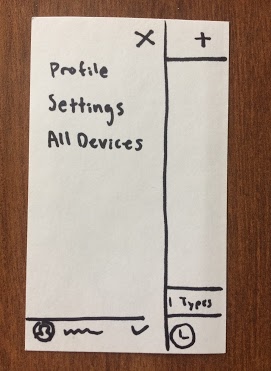 Profile
Settings
All Devices
Types